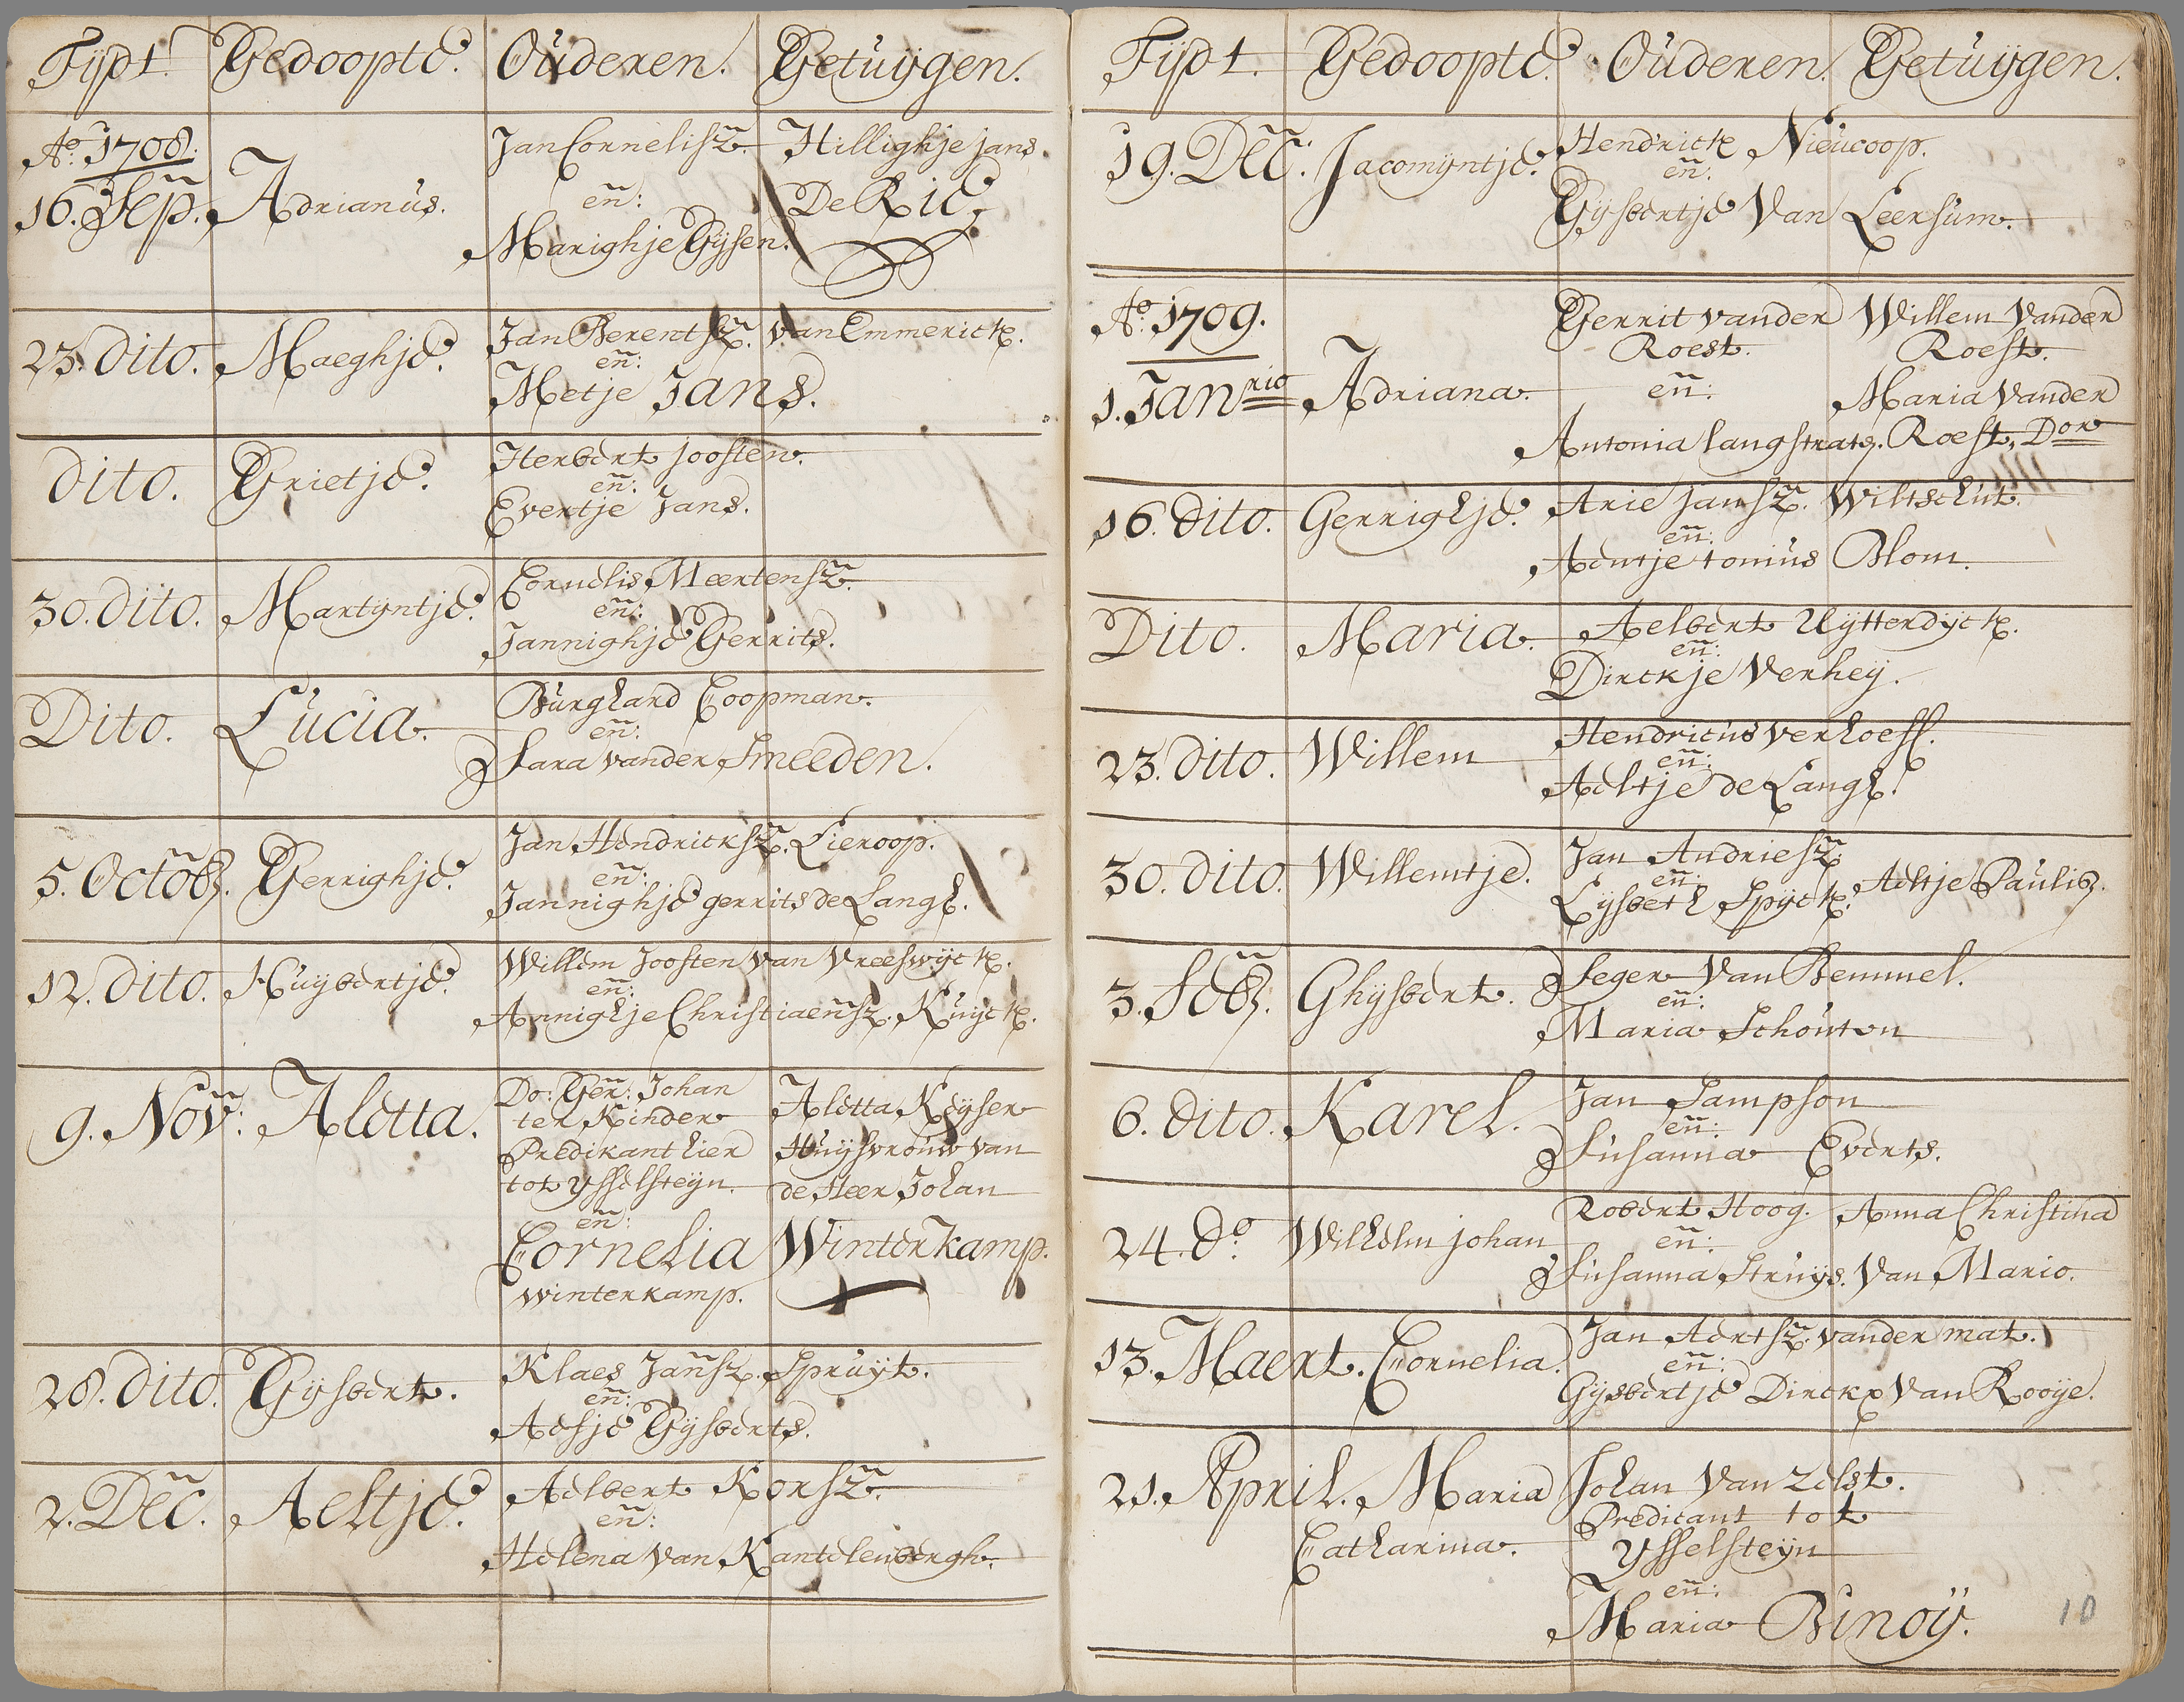 Tijdt. Gedoopte. Ouderen. Getuijgen.
Ao. 1708.
16. Sep. Adrianus. Jan Cornelisz. Hillighje jans.
en: De Rie.
Marighje Gijsen.
23. dito. Maeghje. Jan Berentsz. van Emmerick.
en:
Metje Jans.
dito. Grietje. Herbert joosten.
en:
Evertje Jans.
30. dito. Martijntje. Cornelis Meertensz.
en:
Jannighje Gerrits.
Dito. Lucia. Burghard Coopman.
en:
Sara vander Smeeden.
5. Octob. Gerrighje. Jan Hendricksz. Lieroop.
en:
Jannighje gerrits de Langh.
12. dito. Huijbertje. Willem Joosten van Vreeswijck.
en:
Annighje Christiaensz. Kuijck.
9. Nov: Aletta. Do: Ger: Johan Aletta Keijser
ter Kinder Huijsvrouw van
Predikant hier de Heer Johan
tot ysselsteijn. Winterkamp.
en:
Cornelia
winterkamp.
28. dito. Gijsbert. Klaes Jansz. Spruijt.
en:
Aeltje Gijsberts.
2. Dec. Aeltje. Aelbert Korsz.
en:
Helena van Kantelenbergh.
Tijdt. Gedoopte. Ouderen. Getuijgen.
19. Dec: Jacomijntje. Hendrick Nieucoop.
en.
Gijsbertje Van Leersum.
Ao. 1709.
1. Janrio Adriana. Gerrit vander Willem Vander
Roest. Roest.
en: Maria Vander
Antonia langstraty. Roest, Dor
16. dito. Gerrighje. Arie Jansz. Wiltschut.
en:
Aentje tonius Blom.
Dito. Maria. Aelbert Uijtterdijck.
en:
Dirckje Verheij.
23. dito. Willem Hendricus verhoeff.
en:
Aeltje de Langh.
30. dito. Willemtje. Jan Andriesz Aeltje Paulis.
en:
Lijsbeth Spijck.
3. Feb. Ghijsbert. Seger Van Bemmel.
en:
Maria Schouten
6. dito. Karel. Jan Sampson
en:
Susanna Everts.
24. do. Wilhelm johan Robert Hoog. Anna Christina
en: Van Mario.
Susanna Struijs.
13. Maert. Cornelia. Jan Aertsz. vander mat.
en:
Gijsbertje Dirckx Van Rooije.
21. April. Maria Johan Van zelst.
Catharina. Predicant tot
ysselsteijn
en:
Maria Binoij.
10